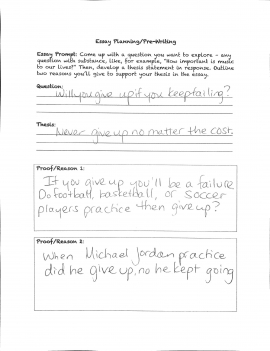 Essay Planning/Pre-Writing
Essay Prompt: Come up with a question you want to explore – any
question with substance, like, for example, "How important is music
to our lives?" Then, develop a thesis statement in response. Outline
two reasons you'll give to support your thesis in the essay.
Question:
Will you give up if you keep failing?
Thesis:
Never give up no matter the cost.
Proof/Reason 1:
If you give up you'll be a failure
Do football, basketball, or soccer
players practice then give up?
Proof/Reason 2:
When Michael Jordan practice
did he give up, no he kept going